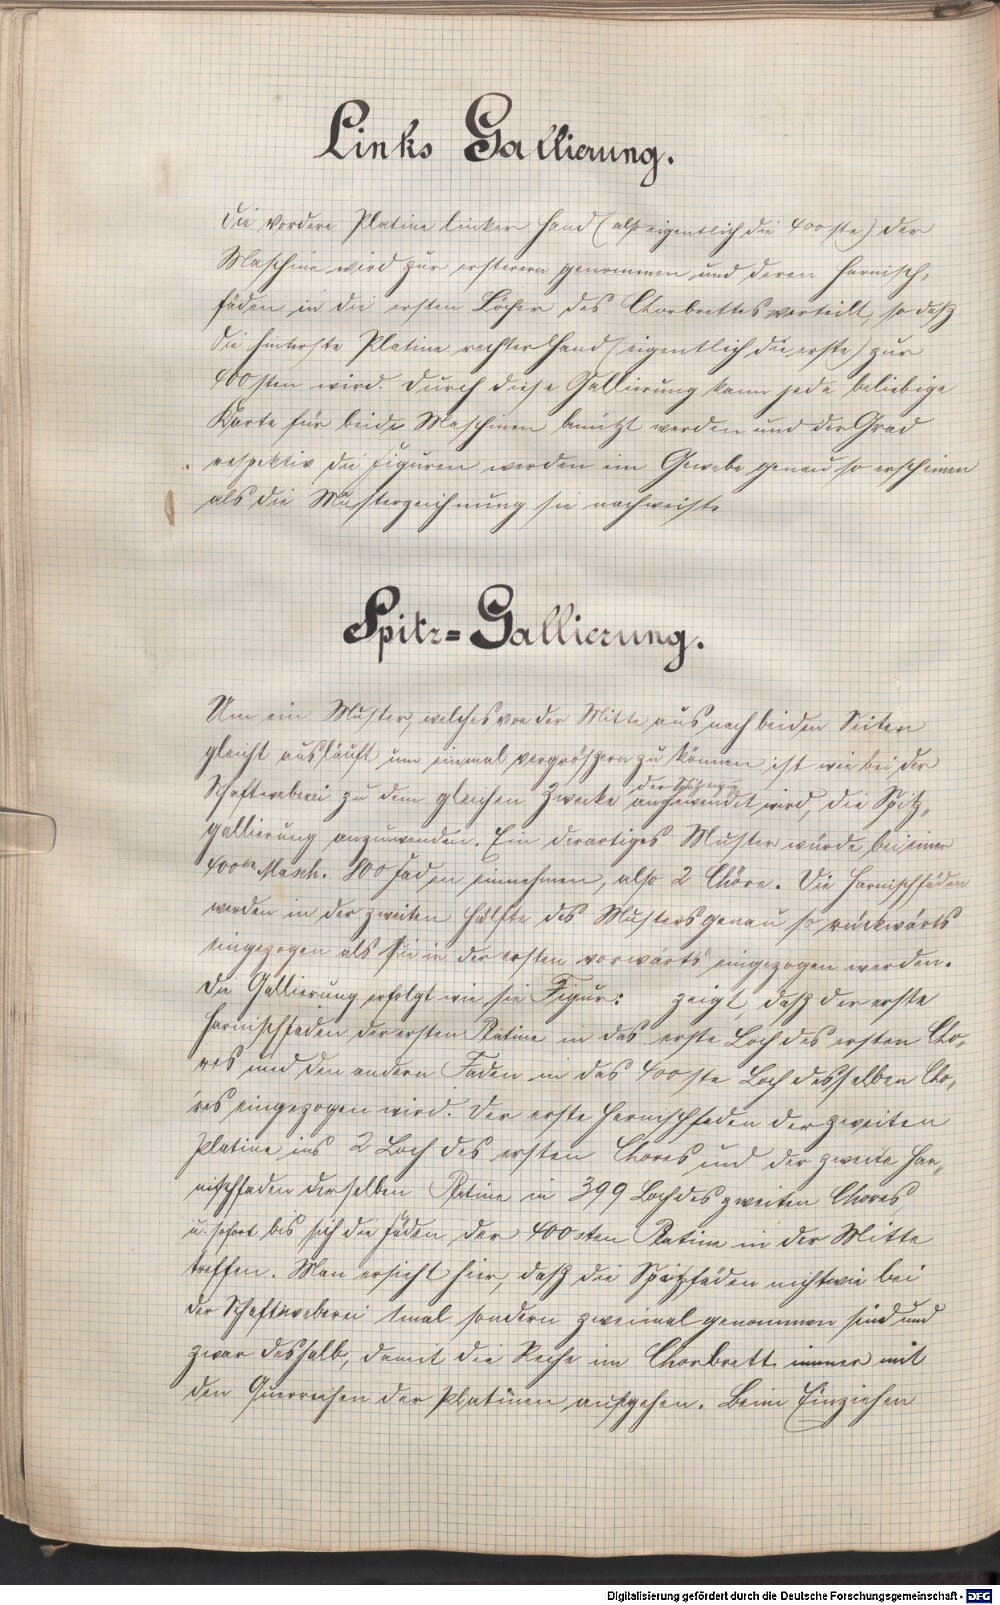 Links Gallierung.
Die vordere Platine linker Hand (also eigentlich die 400ste) der
Maschine wird zur ersteren genommen und deren Harnisch-
fäden in die ersten Löcher des Chorbrettes verteilt, so daß
die hinterste Platine rechter Hand (eigentlich die erste) zur
400sten wird. Durch diese Gallierung kann jede beliebige
Karte für beide Maschinen benützt werden und der Grad
respektiv die Figuren werden im Gewebe genau so erscheinen
als die Musterzeichnung sie nachweist.
Spitz=Gallierung.
Um ein Muster, welches von der Mitte aus nach beiden Seiten
gleicht ausläuft um einmal vergrößern zu können ist wie bei der
der Spitzeinzug
Schaftweberei zu dem gleichen Zwecke angewendet wird, die Spitz-
gallierung anzuwenden. Ein derartiges Muster würde bei einer
400er Masch. 800 Faden einnehmen, also 2 Chöre. Die Harnischfäden
werden in der zweiten Hälfte des Musters genau so rückwärts
eingezogen als sie in der ersten vorwärts eingezogen werden.
Die Gallierung erfolgt wie sie Figur: zeigt, daß der erste
Harnischfaden der ersten Platine in das erste Loch des ersten Cho-
res und den andern Faden in das 400ste Loch desselben Cho-
res eingezogen wird. Der erste Harnischfaden der zweiten
Platine ins 2 Loch des ersten Chores und der zweite Har-
nischfaden derselben Platine in 399 Loch des zweiten Chores,
u. sofort bis sich die Fäden der 400sten Platine in der Mitte
treffen. Man ersieht hier, daß die Spitzfäden nicht wie bei
der Schaftweberei 1mal sondern zweimal genommen sind und
zwar deshalb, damit die Reihe im Chorbrett immer mit
den Querreihen der Platinen aufgehen. Beim Einziehen
Digitalisierung gefördert durch die Deutsche Forschungsgemeinschaft - DFG